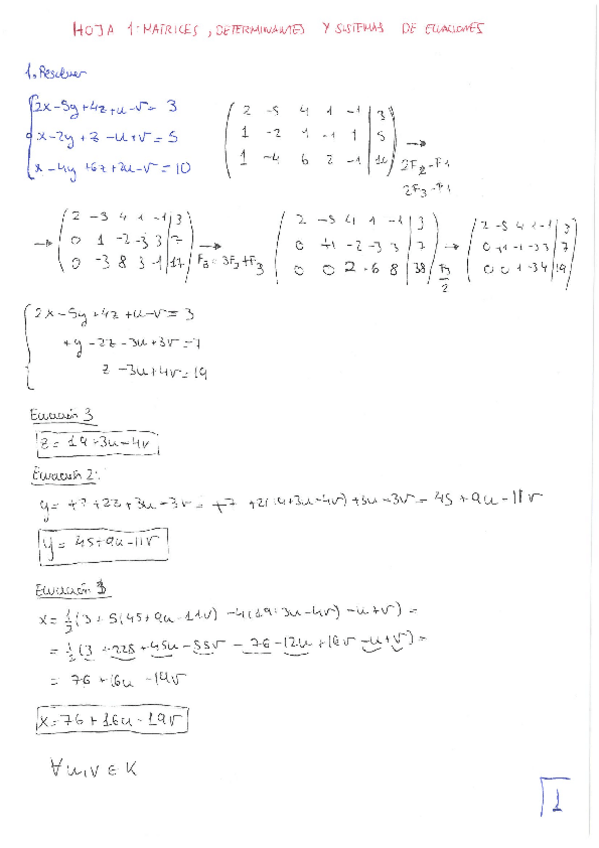 HOJA 1: MATRICES, DETERMINANTES Y SISTEMAS DE ECUACIONES
1. Resolver
2x-5y+4z+u-v= 3
x-2y+z-u+v=5
x-4y+6z+2u-v=10
2 -5 4 1 -1 | 3
1 -2 1 -1 1 | 5
1 -4 6 2 -1 | 10
2F2-F1
2F3-F1
2 -5 4 1 -1 | 3
0 1 -2 -3 3 | 7
0 -3 8 3 -1 | 17
F3=3F2+F3
2 -5 4 1 -1 | 3
0 +1 -2 -3 3 | 7
0 0 2 -6 8 | 38
F3/2
2 -5 4 1 -1 | 3
0 0 1 -3 4 | 19
2x-5y+4z+u-v=3
+y-2z-3u+3v=7
z-3u+4v=19
Ecuación 3
z=19+3u-4v
Ecuación 2:
y= +7+2z+3u-3v= +7 +2(19+3u-4v)+3u-3v= 45+9u-11v
y= 45+9u-11v
Ecuación 1
x=1/2(3+5(45+9u-11v)-4(19+3u-4v)-u+v)=
=1/2(3+225+45u-55v-76-12u+16v-u+v)=
= 76+16u-19v
x=76+16u-19v
∀u,v∈K
1